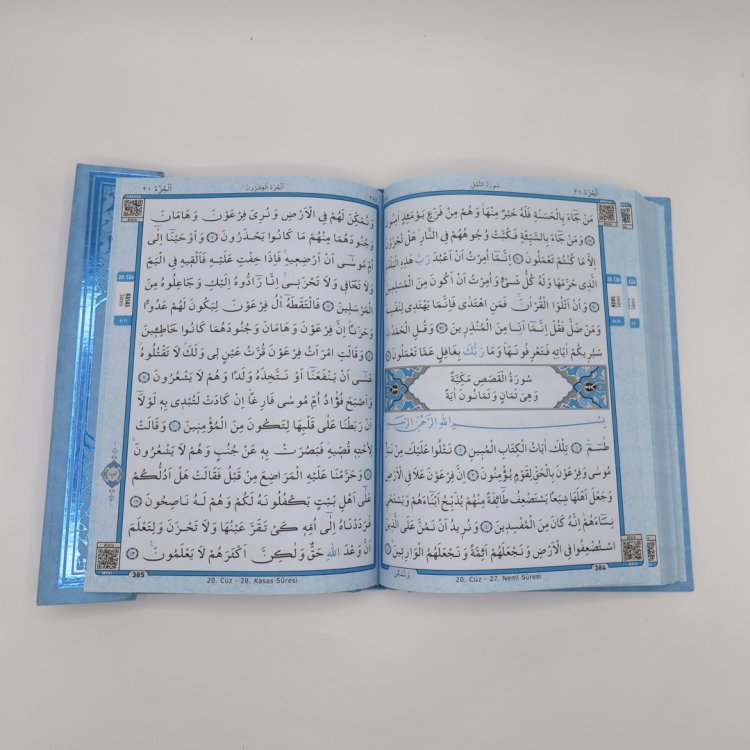 اَلْجُزْءُ ٢٠
سُورَةُ النَّمْلِ
مَنْ جَٓاءَ بِالْحَسَنَةِ فَلَهُ خَيْرٌ مِنْهَاۚ وَهُمْ مِنْ فَزَعٍ يَوْمَئِذٍ اٰمِنُونَ
﴿٨٩﴾ وَمَنْ جَٓاءَ بِالسَّيِّئَةِ فَكُبَّتْ وُجُوهُهُمْ فِي النَّارِۜ هَلْ تُجْزَوْنَ
اِلَّا مَا كُنْتُمْ تَعْمَلُونَ ﴿٩٠﴾ اِنَّمَٓا اُمِرْتُ اَنْ اَعْبُدَ رَبَّ هٰذِهِ الْبَلْدَةِ
الَّذ۪ي حَرَّمَهَا وَلَهُ كُلُّ شَيْءٍۘ وَاُمِرْتُ اَنْ اَكُونَ مِنَ الْمُسْلِم۪ينَ
﴿٩١﴾ وَاَنْ اَتْلُوَا الْقُرْاٰنَۚ فَمَنِ اهْتَدٰى فَاِنَّمَا يَهْتَد۪ي لِنَفْسِه۪ۚ
وَمَنْ ضَلَّ فَقُلْ اِنَّمَٓا اَنَا۬ مِنَ الْمُنْذِر۪ينَ ﴿٩٢﴾ وَقُلِ الْحَمْدُ لِلّٰهِ
سَيُر۪يكُمْ اٰيَاتِه۪ فَتَعْرِفُونَهَاۜ وَمَا رَبُّكَ بِغَافِلٍ عَمَّا تَعْمَلُونَ ﴿٩٣﴾
سُورَةُ الْقَصَصِ مَكِّيَّةٌ
وَهِيَ ثَمَانٍ وَثَمَانُونَ اٰيَةً
بِسْمِ اللّٰهِ الرَّحْمٰنِ الرَّح۪يمِ
طٰسٓمٓ ﴿١﴾ تِلْكَ اٰيَاتُ الْكِتَابِ الْمُب۪ينِ ﴿٢﴾ نَتْلُوا عَلَيْكَ مِنْ نَبَأِ
مُوسٰى وَفِرْعَوْنَ بِالْحَقِّ لِقَوْمٍ يُؤْمِنُونَ ﴿٣﴾ اِنَّ فِرْعَوْنَ عَلَا فِي الْاَرْضِ
وَجَعَلَ اَهْلَهَا شِيَعاً يَسْتَضْعِفُ طَٓائِفَةً مِنْهُمْ يُذَبِّحُ اَبْنَٓاءَهُمْ وَيَسْتَحْي۪
نِسَٓاءَهُمْۜ اِنَّهُ كَانَ مِنَ الْمُفْسِد۪ينَ ﴿٤﴾ وَنُر۪يدُ اَنْ نَمُنَّ عَلَى الَّذ۪ينَ
اسْتُضْعِفُوا فِي الْاَرْضِ وَنَجْعَلَهُمْ اَئِمَّةً وَنَجْعَلَهُمُ الْوَارِث۪ينَۙ ﴿٥﴾
وَنُمَكِّنَ
384
20. Cüz - 27. Neml Sûresi
اَلْجُزْءُ الْعِشْرُونَ
اَلْجُزْءُ ٢٠
وَنُمَكِّنَ لَهُمْ فِي الْاَرْضِ وَنُرِيَ فِرْعَوْنَ وَهَامَانَ
وَجُنُودَهُمَا مِنْهُمْ مَا كَانُوا يَحْذَرُونَ ﴿٦﴾ وَاَوْحَيْنَٓا اِلٰٓى
اُمِّ مُوسٰٓى اَنْ اَرْضِع۪يهِۚ فَاِذَا خِفْتِ عَلَيْهِ فَاَلْق۪يهِ فِي الْيَمِّ
وَلَا تَخَاف۪ي وَلَا تَحْزَن۪يۚ اِنَّا رَٓادُّوهُ اِلَيْكِ وَجَاعِلُوهُ مِنَ
الْمُرْسَل۪ينَ ﴿٧﴾ فَالْتَقَطَهُٓ اٰلُ فِرْعَوْنَ لِيَكُونَ لَهُمْ عَدُواًّ
وَحَزَناًۜ اِنَّ فِرْعَوْنَ وَهَامَانَ وَجُنُودَهُمَا كَانُوا خَاطِـ۪ٔينَ
﴿٨﴾ وَقَالَتِ امْرَاَتُ فِرْعَوْنَ قُرَّتُ عَيْنٍ ل۪ي وَلَكَۜ لَا تَقْتُلُوهُۗ
عَسٰٓى اَنْ يَنْفَعَنَٓا اَوْ نَتَّخِذَهُ وَلَداً وَهُمْ لَا يَشْعُرُونَ ﴿٩﴾
وَاَصْبَحَ فُؤٰادُ اُمِّ مُوسٰى فَارِغاًۜ اِنْ كَادَتْ لَتُبْد۪ي بِه۪ لَوْلَٓا
اَنْ رَبَطْنَا عَلٰى قَلْبِهَا لِتَكُونَ مِنَ الْمُؤْمِن۪ينَ ﴿١٠﴾ وَقَالَتْ
لِاُخْتِه۪ قُصّ۪يهِۘ فَبَصُرَتْ بِه۪ عَنْ جُنُبٍ وَهُمْ لَا يَشْعُرُونَۙ
﴿١١﴾ وَحَرَّمْنَا عَلَيْهِ الْمَرَاضِعَ مِنْ قَبْلُ فَقَالَتْ هَلْ اَدُلُّكُمْ
عَلٰٓى اَهْلِ بَيْتٍ يَكْفُلُونَهُ لَكُمْ وَهُمْ لَهُ نَاصِحُونَ ﴿١٢﴾
فَرَدَدْنَاهُ اِلٰٓى اُمِّه۪ كَيْ تَقَرَّ عَيْنُهَا وَلَا تَحْزَنَ وَلِتَعْلَمَ
اَنَّ وَعْدَ اللّٰهِ حَقٌّ وَلٰكِنَّ اَكْثَرَهُمْ لَا يَعْلَمُونَ۟ ﴿١٣﴾
385
20. Cüz - 28. Kasas Sûresi
20. Cüz